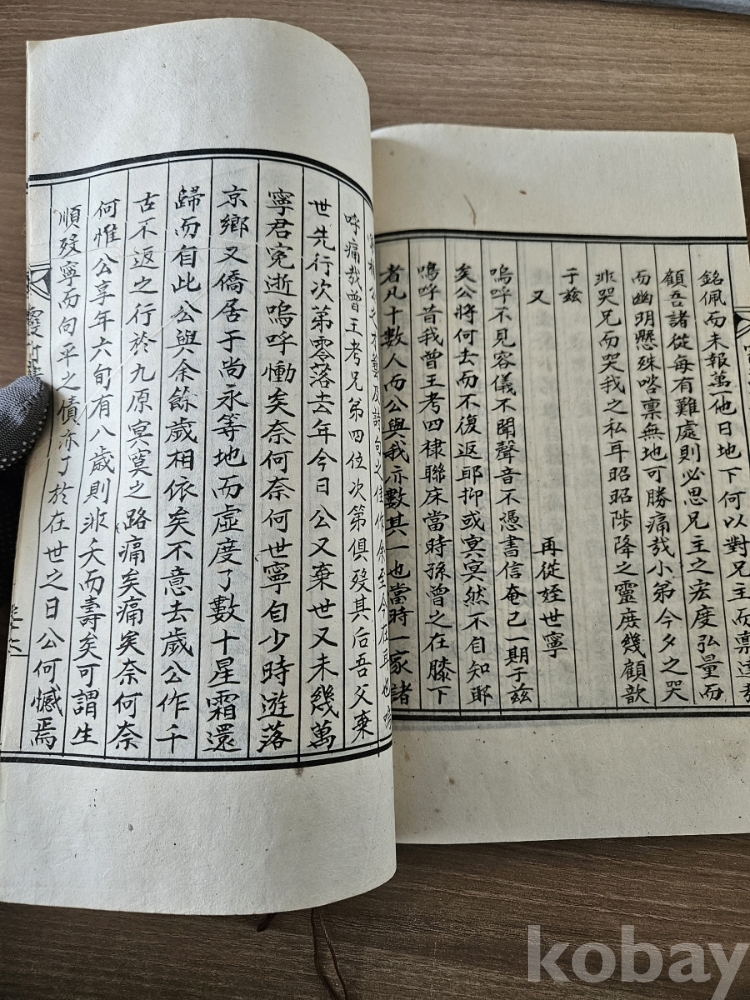 銘佩而未報萬一他日地下何以對兄主而禀
顧吾諸從每有難處則必思兄主之宏度弘量而
而幽明懸殊咨禀無地可勝痛哉小弟今夕之哭
非哭兄而哭我之私耳昭昭陟降之靈庶幾顧歆
于玆
又
再從姪世寧
嗚呼不見容儀不聞聲音不憑書信奄己一期于玆
矣公將何去而不復返耶抑或冥冥然不自知耶
嗚呼昔我曾王考四棣聯床當時孫曾之在膝下
者凡十數人而公與我亦數其一也當時一家諸
呼痛哉曾王考兄弟四位次第俱殁其后吾父棄
世先行次第零落去年今日公又棄世又未幾萬
寧君寃逝嗚呼慟矣奈何奈何世寧自少時遊落
京鄉又僑居于尚永等地而虛度了數十星霜還
歸而自此公與余餘歲相依矣不意去歲公作千
古不返之行於九原冥寞之路痛矣痛矣奈何奈
何惟公享年六旬有八歲則非夭而壽矣可謂生
順殁寧而向平之債亦了於在世之日公何憾焉
kobay